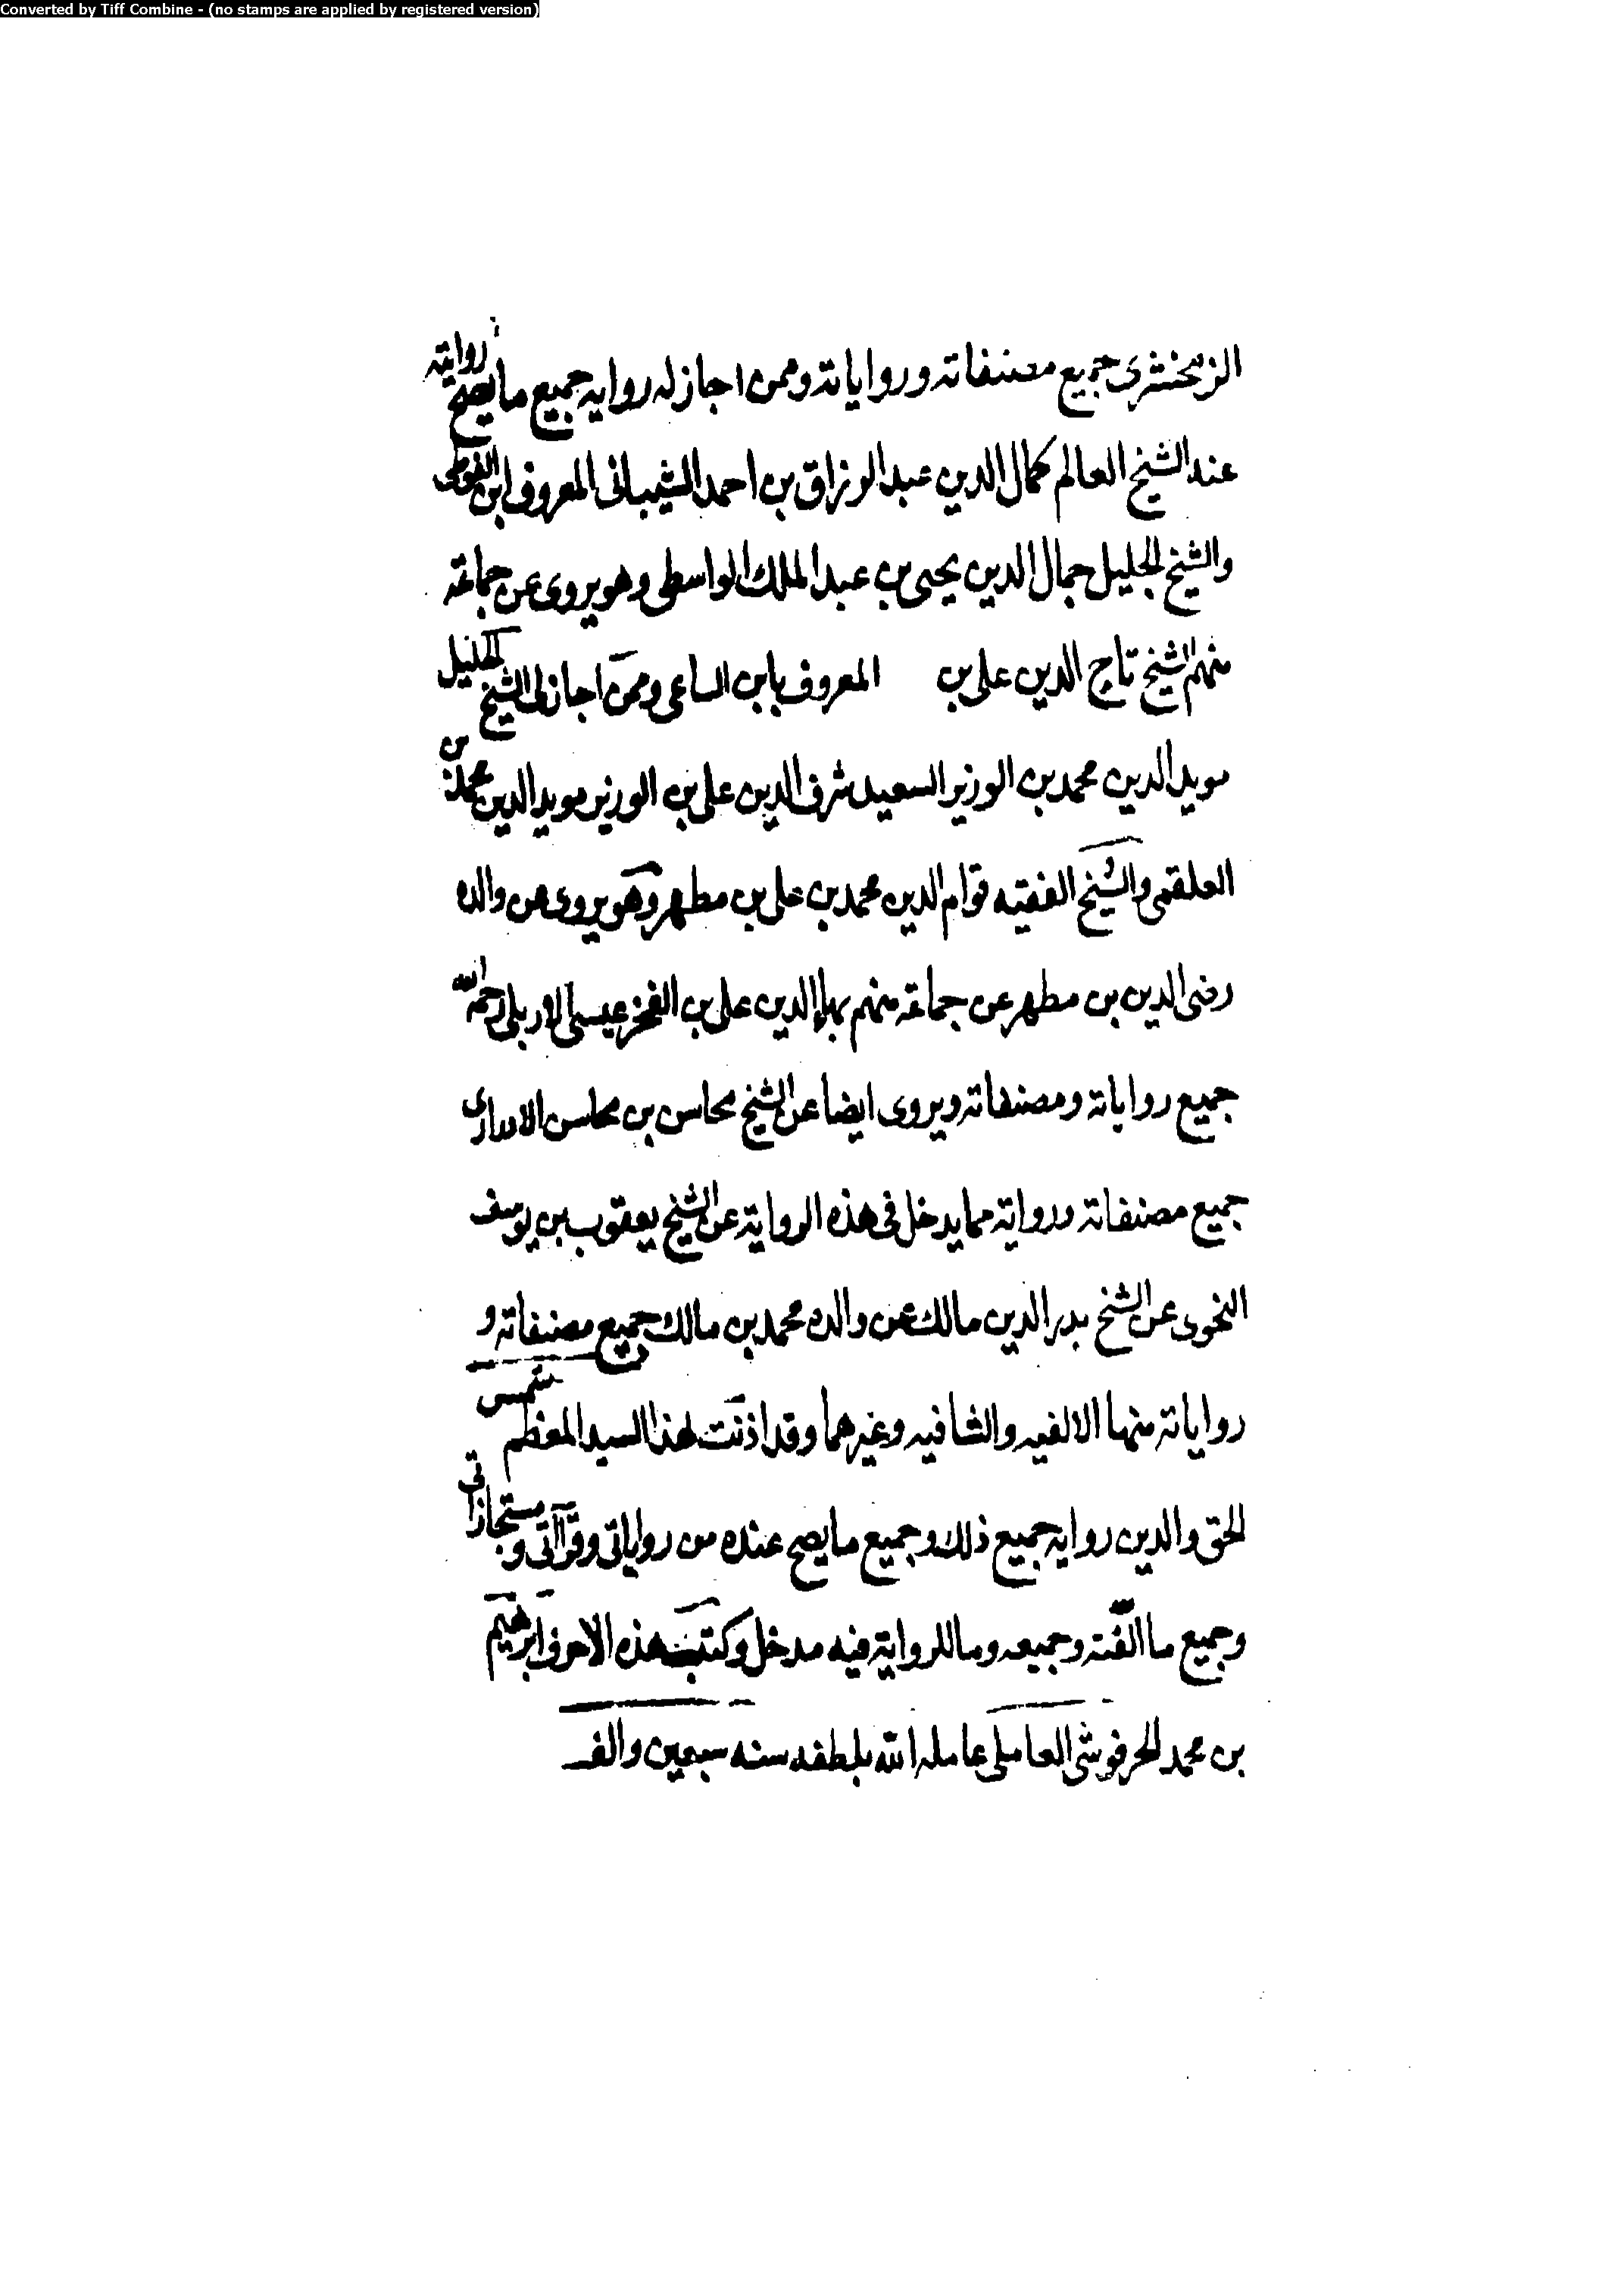 Converted by Tiff Combine - (no stamps are applied by registered version)
الزمخشرى جميع مصنفاته ورواياته وممن اجاز له روايه جميع ما يصح روايته
عنده الشيخ العالم كمال الدين عبد الرزاق بن احمد الشيبانى المعروف ابن الفوطى
والشيخ الجليل جمال الدين يحيى بن عبد الملك الواسطى وهو يروى عن جماعة
منهم الشيخ تاج الدين على بن المعروف بابن الساعى وممن اجاز لى الشيخ الجليل
مويد الدين محمد بن الوزير السعيد شرف الدين على بن الوزير مويد الدين محمد بن
العلقمى والشيخ الفقيه قوام الدين محمد بن على بن مطهر وهو يروى عن والده
رضى الدين بن مطهر عن جماعة منهم بهاء الدين على بن الفخر عيسى الاربلى رحمه الله
جميع رواياته ومصنفاته ويروى ايضا عن الشيخ محاسن بن محاسن
جميع مصنفاته وروايته مما يدخل فى هذه الرواية عن الشيخ يعقوب بن يوسف
النحوى عن الشيخ بدر الدين مالك عن والده محمد بن مالك جميع مصنفاته و
رواياته منها الالفيه والشافيه وغيرهما وقد اذنت لهذا السيد المعظم شمس
الحق والدين روايه جميع ذلك وجميع ما يصح عنده من رواياتى وقرآتى ومستجازاتى
وجميع ما الفته وجميعه وما للرواية فيه مدخل وكتب هذه الاحرف ابرهيم
بن محمد الحرفوشى العاملى عامله الله بلطفه سنه سبعين والف